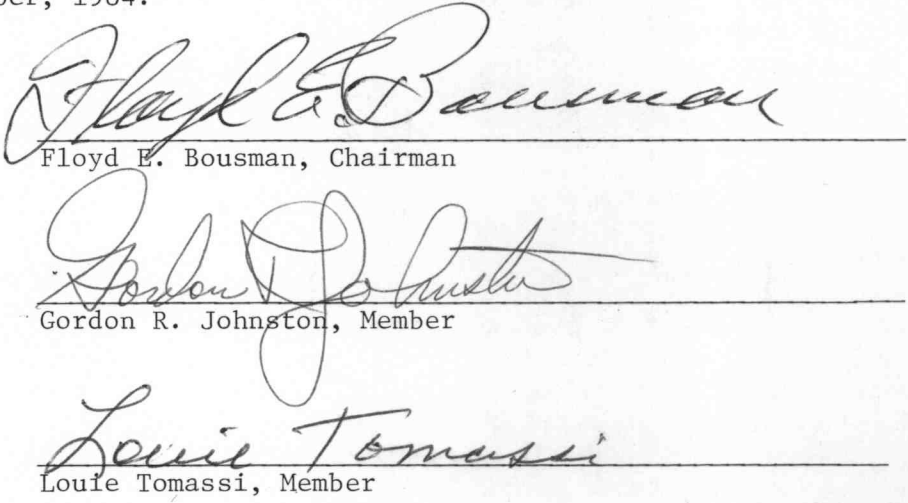 ber, 1984.
Floyd E. Bousman
Floyd E. Bousman, Chairman
Gordon R Johnston
Gordon R. Johnston, Member
Louie Tomassi
Louie Tomassi, Member